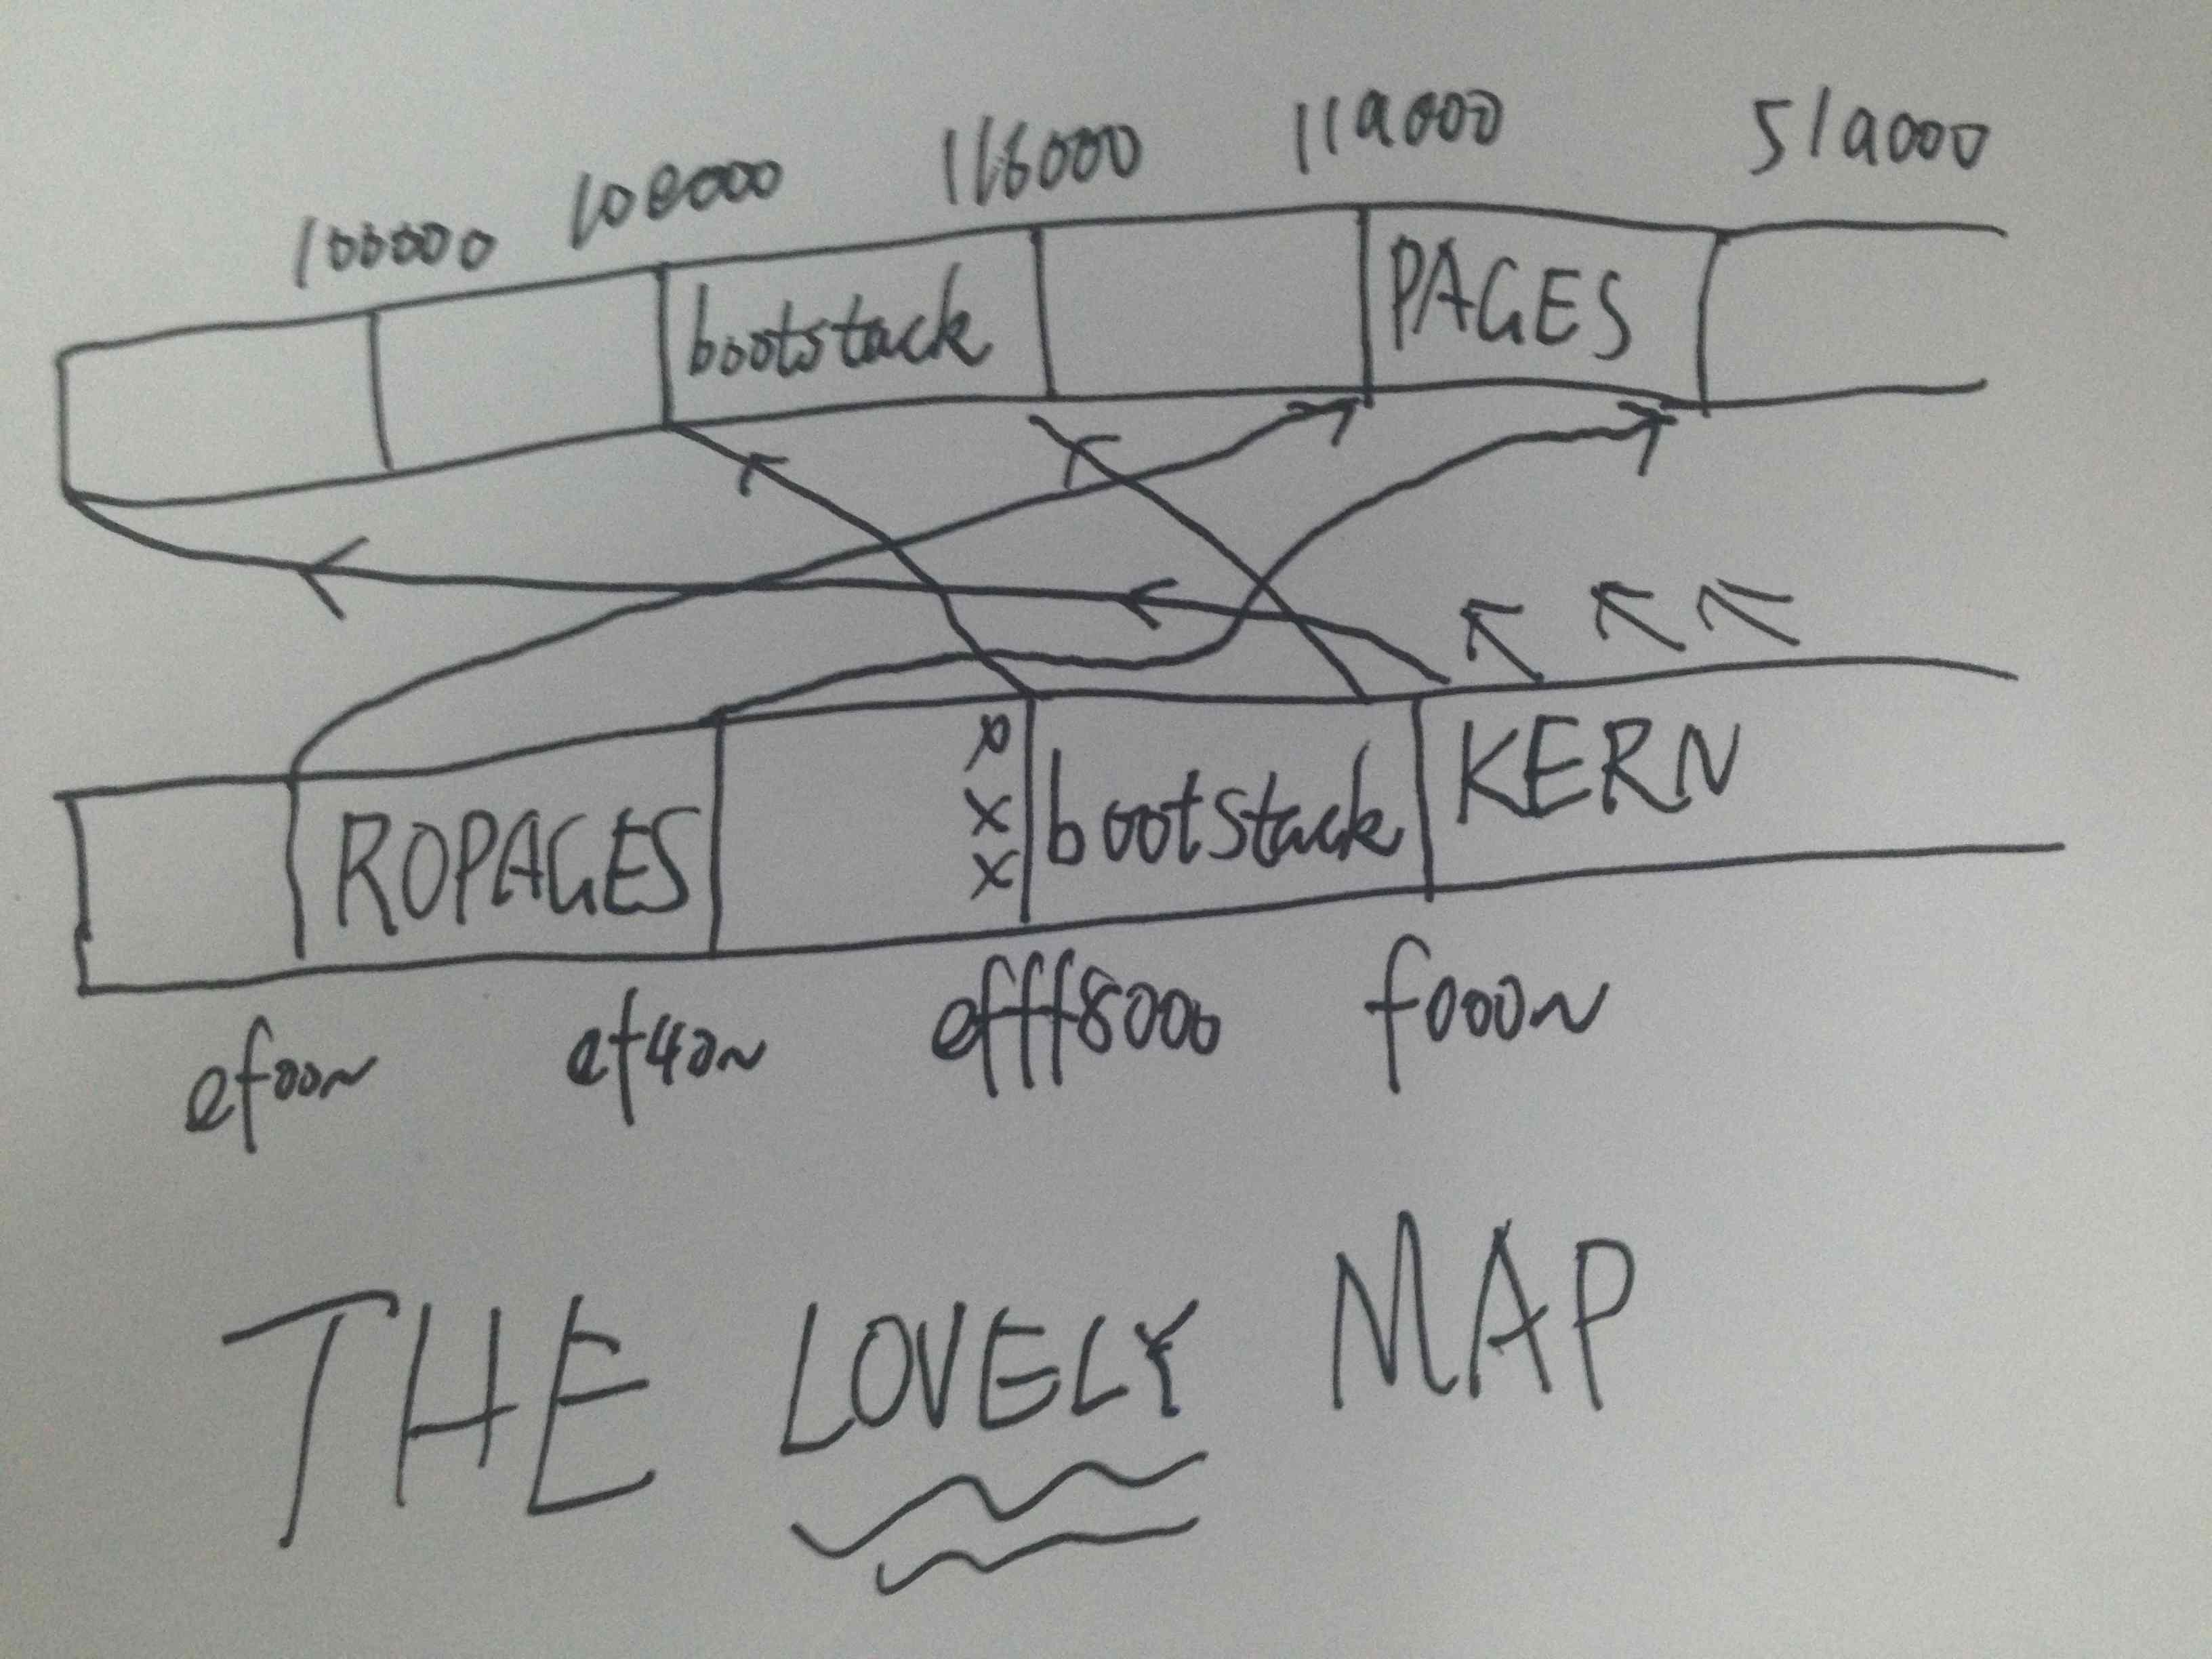 100000 10e000 116000 11a000 51a000
bootstack PAGES
ROPAGES xxx bootstack KERN
ef00~ ef40~ efff8000 f000~
THE LOVELY MAP